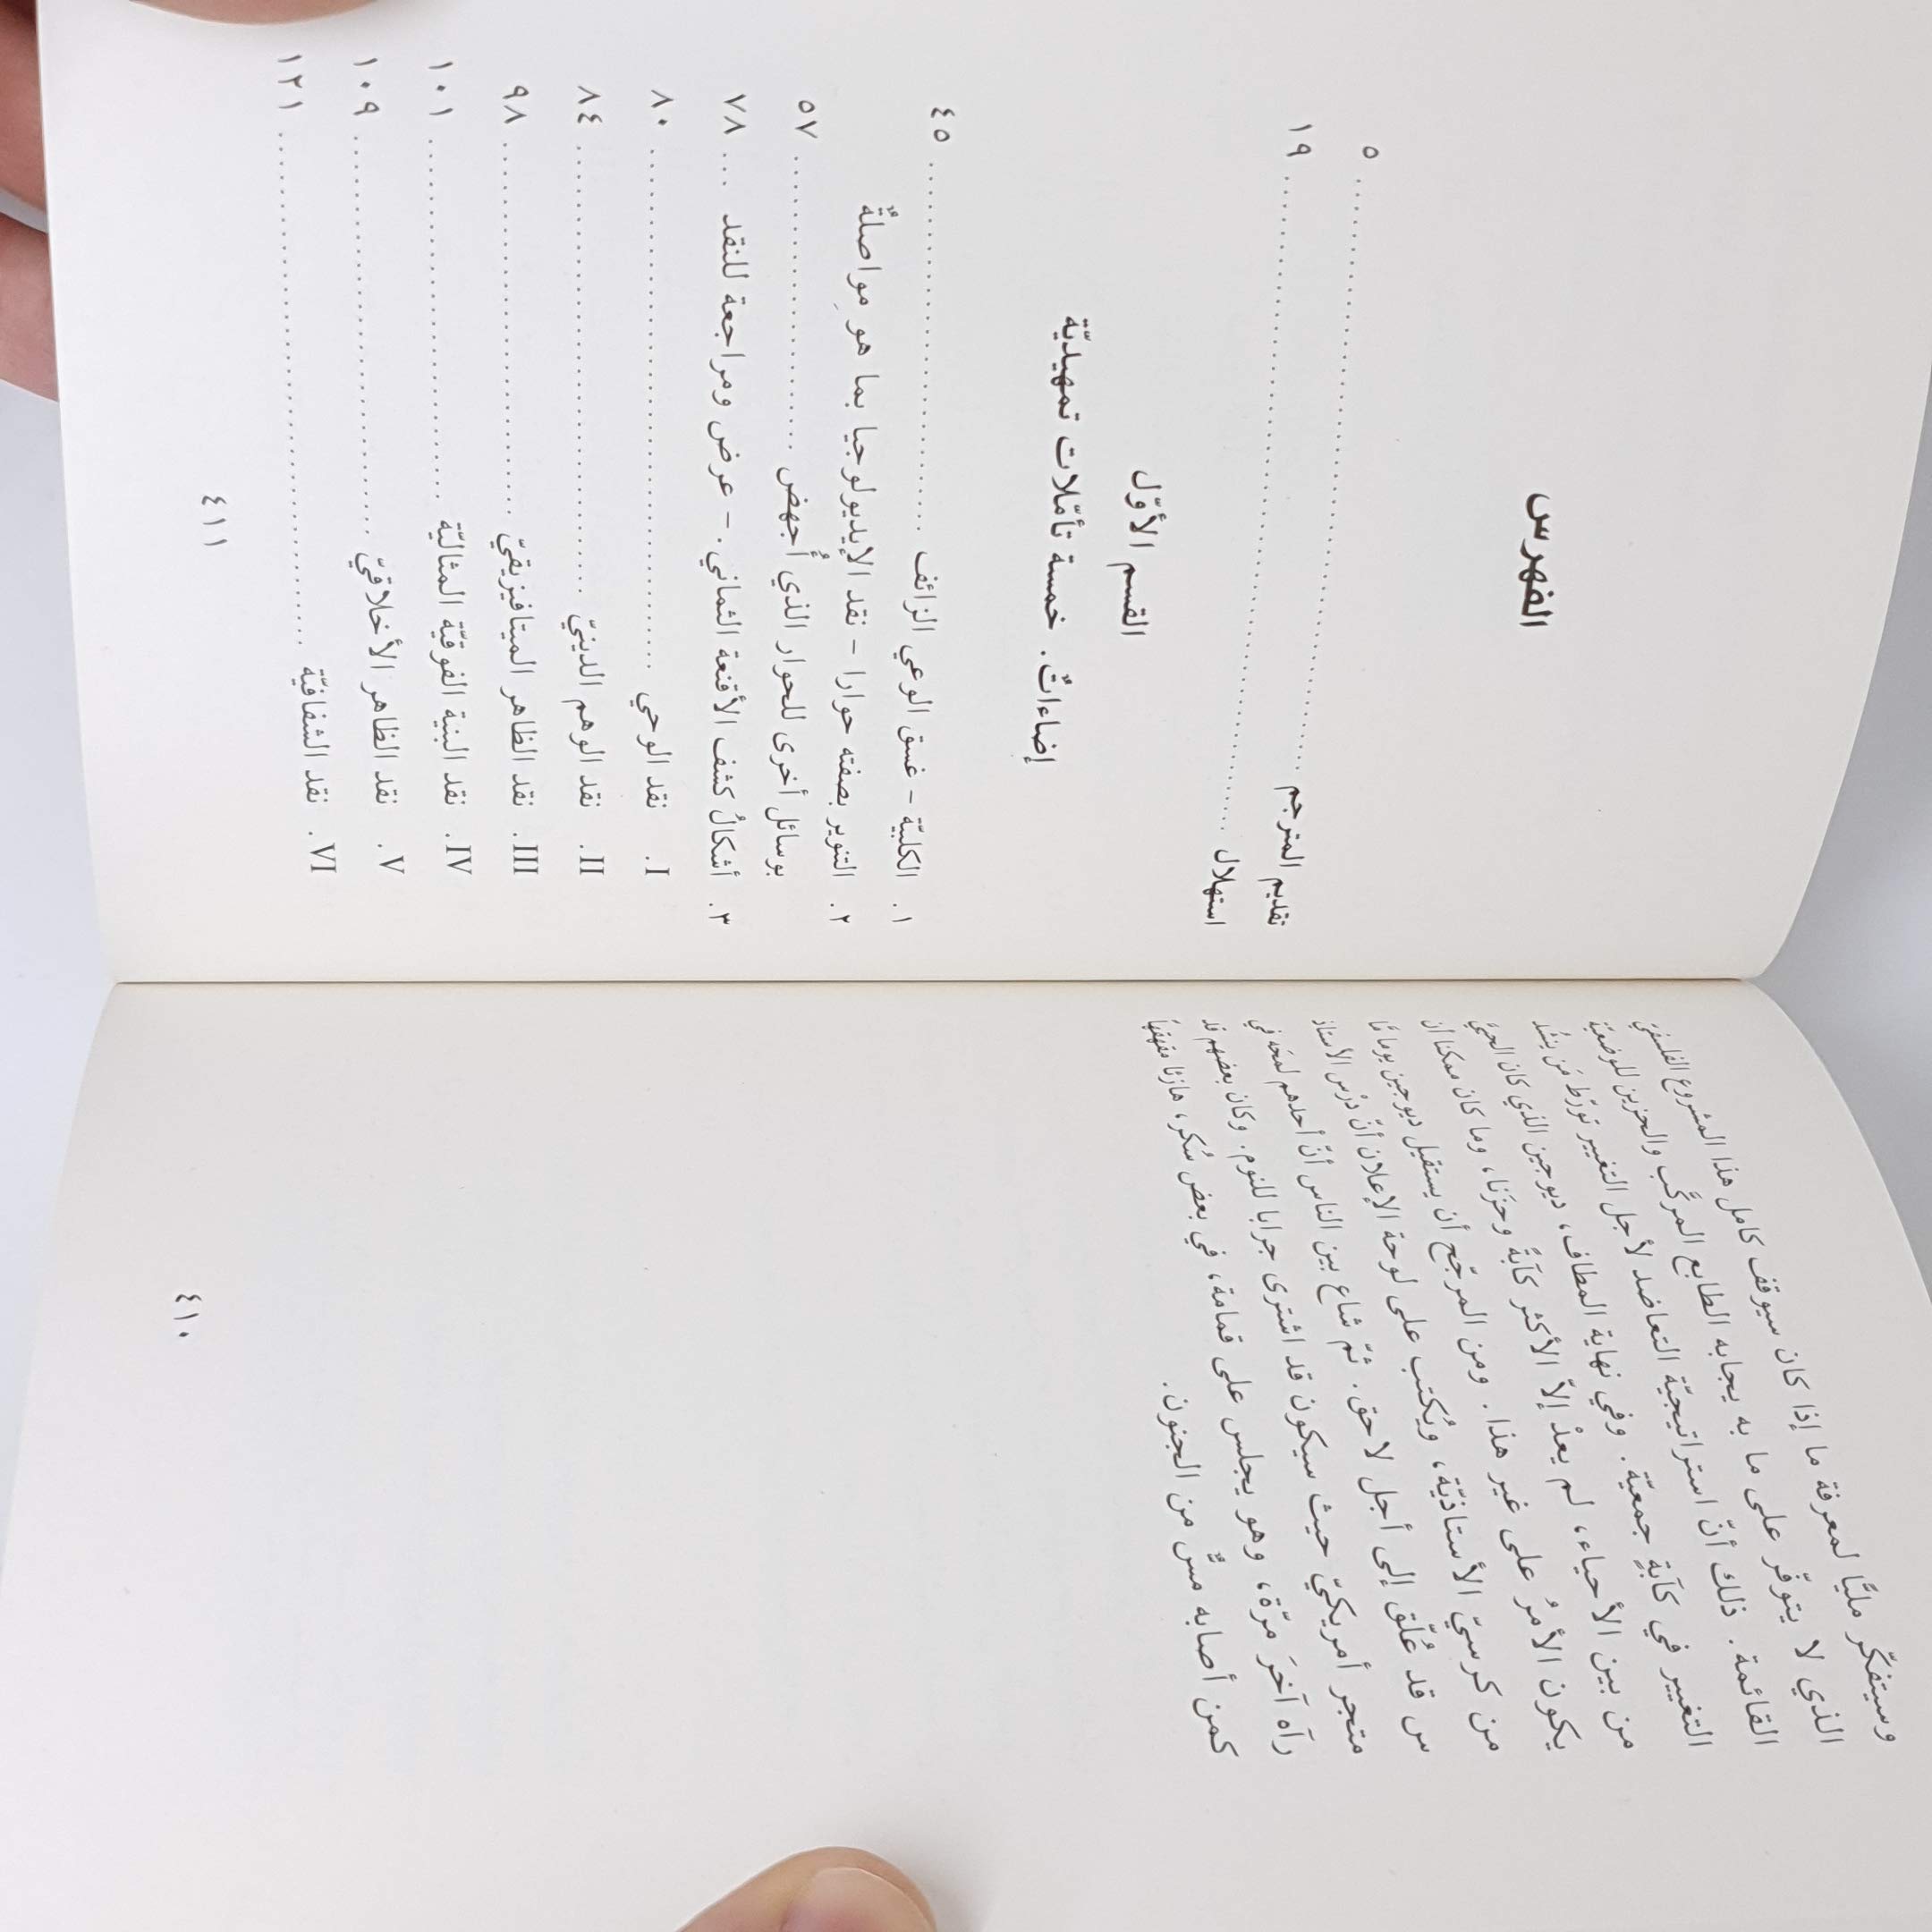 وسيتفكّر مليًّا لمعرفة ما إذا كان سيوقف كامل هذا المشروع الفلسفيّ
الذي لا يتوفّر على ما به يجابه الطابع المركَّب والحزين للوضعيّة
القائمة. ذلك أنّ استراتيجيّة التعاضد لأجل التغيير تورّط مَن ينشد
التغيير في كآبةٍ جمعيّة. وفي نهاية المطاف، ديوجين الذي كان الحيَّ
من بين الأحياء، لم يعدْ إلّا الأكثر كآبةً وحزنا، وما كان ممكنا أن
يكون الأمرُ على غير هذا. ومن المرجّح أن يستقيل ديوجين يوما مّا
من كرسيّ الأستاذيّة، ويُكتب على لوحة الإعلان أنّ درْس الأستاذ
س قد عُلّق إلى أجل لاحق. ثمّ شاع بين الناس أنّ أحدهم لمحَه في
متجر أمريكيّ حيث سيكون قد اشترى جرابا للنوم. وكان بعضهم قد
رآه آخرَ مرّة، وهو يجلس على قمامة، في بعض سُكر، هازئا مقهقها
كمن أصابه مسٌّ من الجنون.
٤١٠
الفهرس
تقديم المترجم ..... ٥
استهلال ..... ١٩
القسم الأوّل
إضاءاتٌ. خمسة تأمّلات تمهيديّة
١. الكلبيّة - غسق الوعي الزائف ..... ٤٥
٢. التنوير بصفته حوارا - نقد الإيديولوجيا بما هو مواصلةٌ
بوسائل أخرى للحوار الذي أُجهض ..... ٥٧
٣. أشكالُ كشف الأقنعة الثماني. - عرض ومراجعة للنقد ... ٧٨
I. نقد الوحي ..... ٨٠
II. نقد الوهم الدينيّ ..... ٨٤
III. نقد الظاهر الميتافيزيقيّ ..... ٩٨
IV. نقد البنية الفوقيّة المثاليّة ..... ١٠١
V. نقد الظاهر الأخلاقيّ ..... ١٠٩
VI. نقد الشفافيّة ..... ١٢١
٤١١